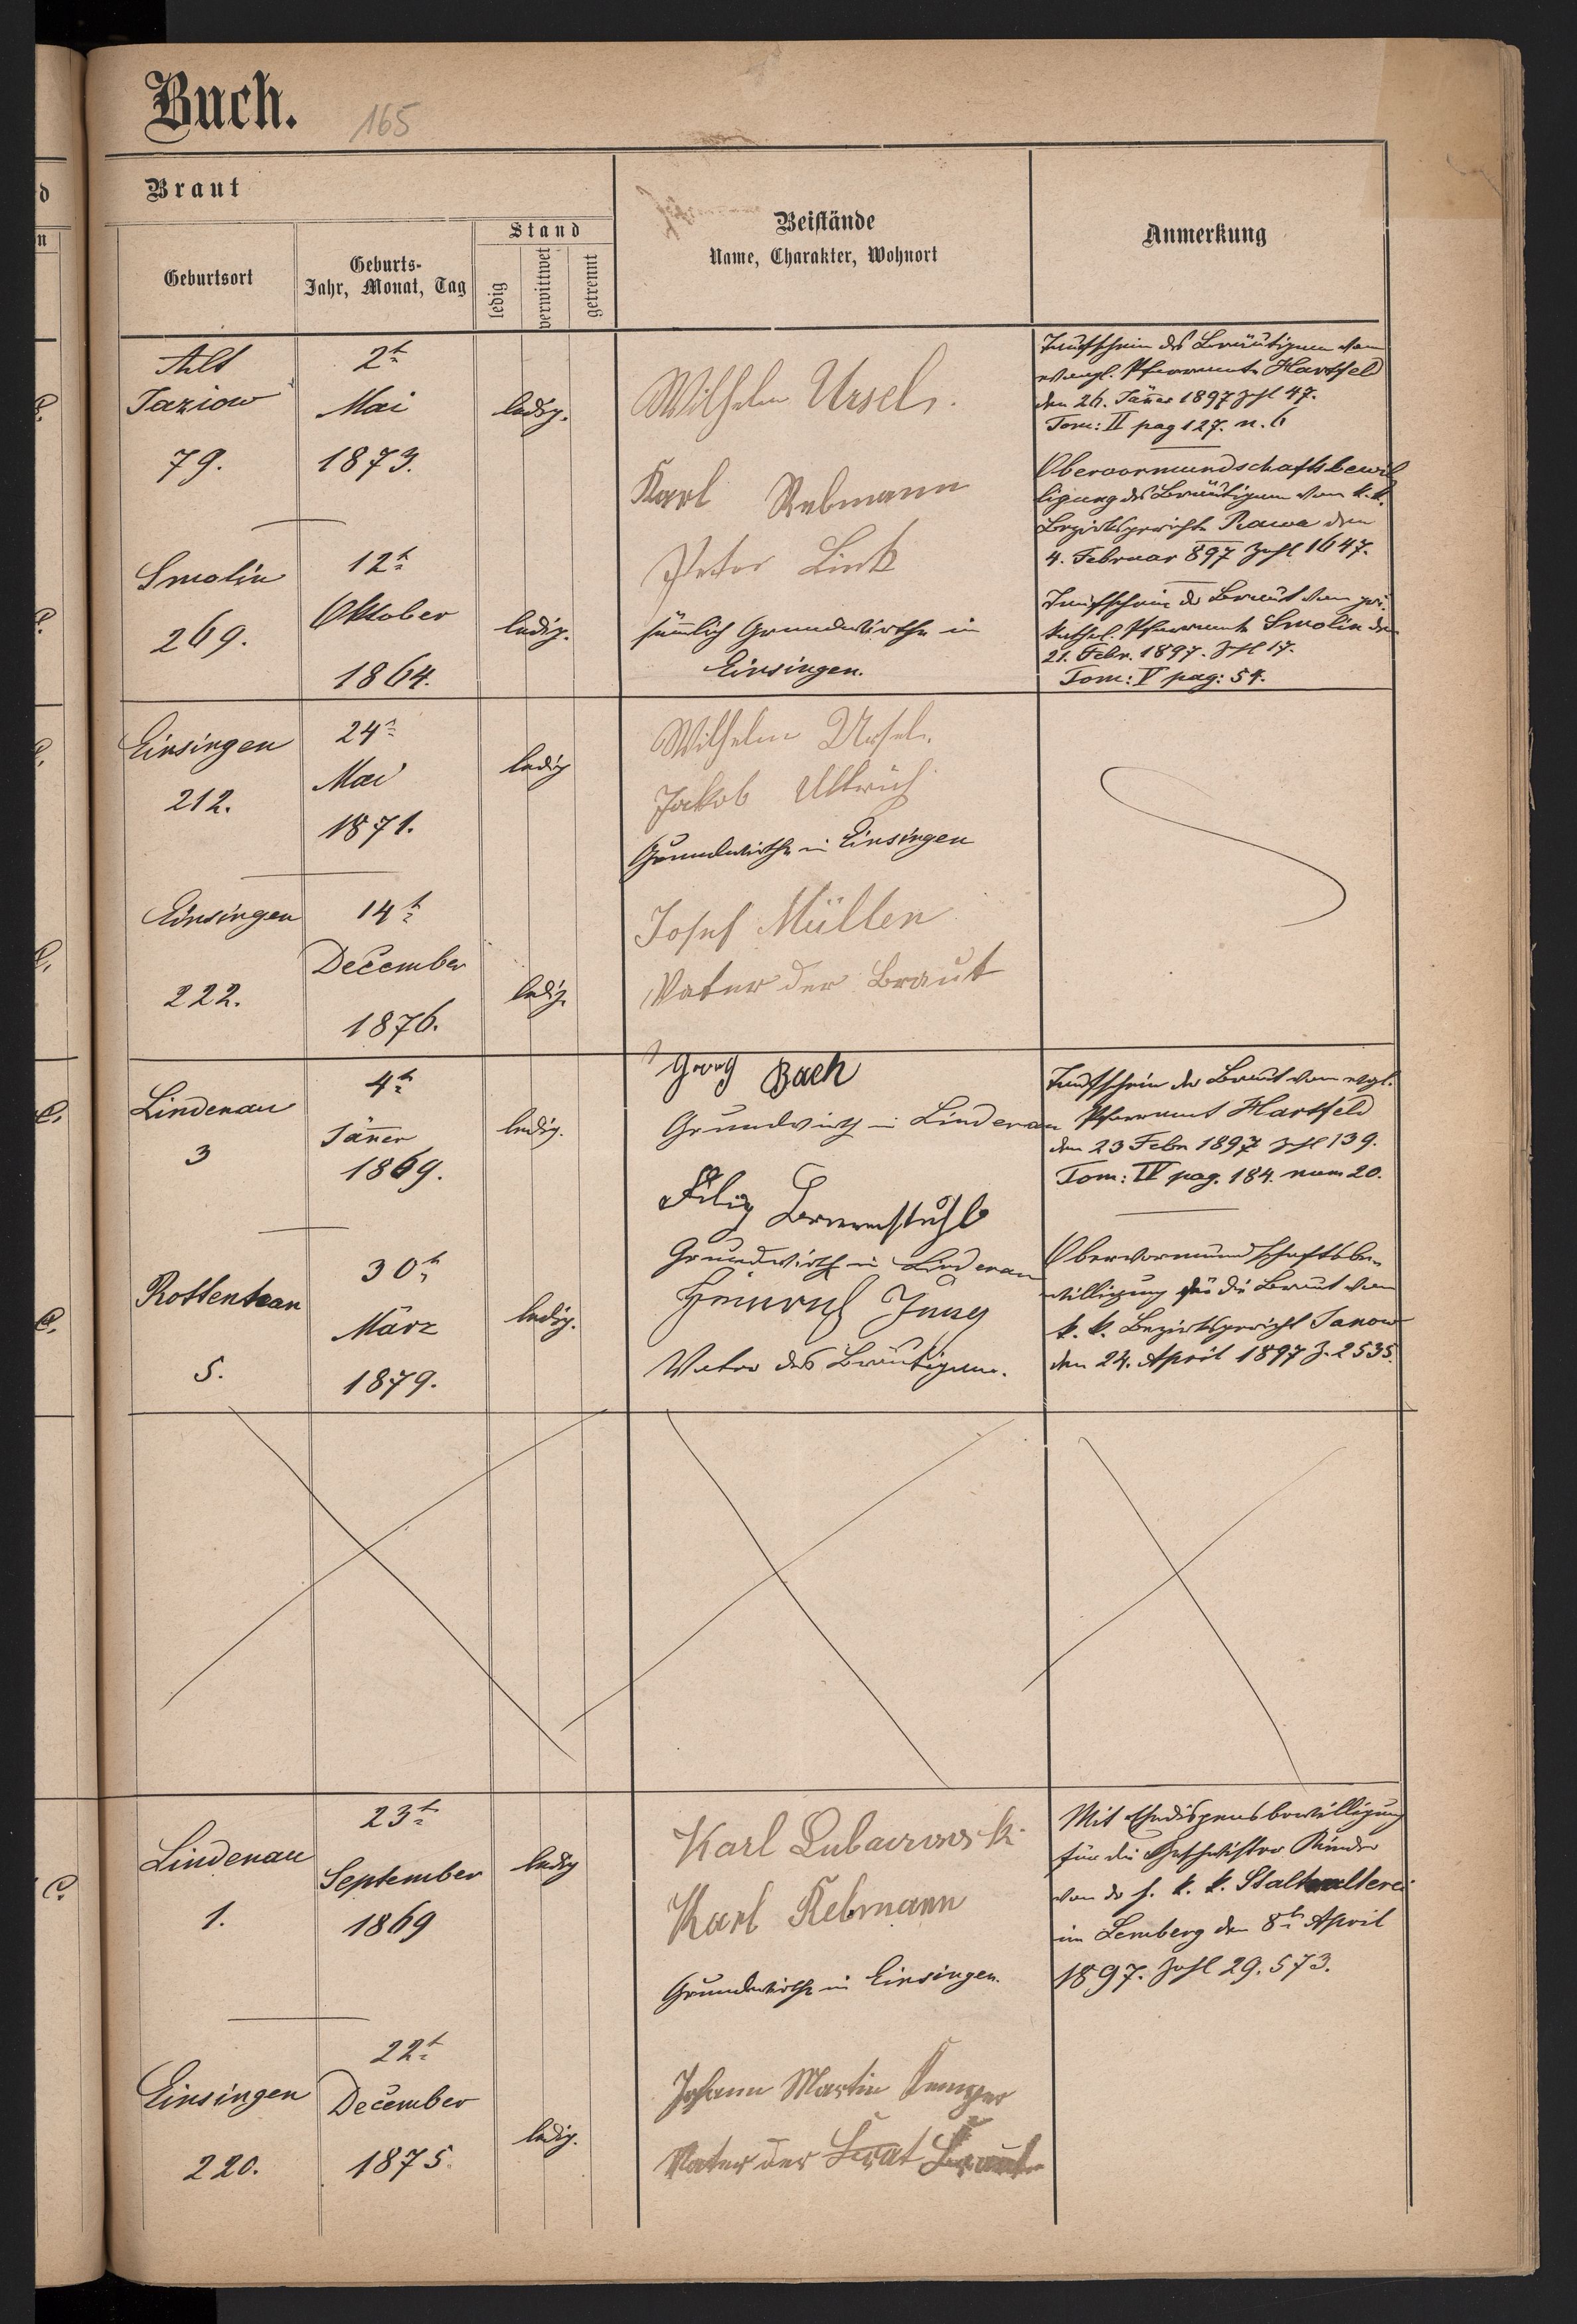 Buch.
165
Braut
Geburtsort
Geburts-
Jahr, Monat, Tag
Stand
ledig
verwittwet
getrennt
Beistände
Name, Charakter, Wohnort
Anmerkung
Alt
Jaziow
79.
2t
Mai
1873.
ledig.
Smolin
269.
12t
Oktober
1864.
ledig.
Wilhelm Ursel.
Karl Rebmann
Peter Link
sämlich Grundwirthe in
Einsingen.
Taufschein des Bräutigam vom
evangl. Pfarramte Hartfeld
den 26. Jäner 1897 Zhl 47.
Tom: II pag 127. n. 6
Obervormundschaftsbewil
ligung des Bräutigam vom k. k.
Bezirksgerichte Rawa den
4. Februar 897 Zahl 1647.
Taufschein der Braut vom
kathol. Pfarramte Smolin den
21. Febr. 1897. Zhl 17.
Tom: V pag: 54.
Einsingen
212.
24t
Mai
1871.
ledig
Einsingen
222.
14t
December
1876.
ledig.
Wilhelm Ursel.
Jakob Ullrich
Grundwirthe in Einsingen
Josef Müller
Vater der Braut
Lindenau
3
4t
Jäner
1869.
ledig.
Rottenhan
5.
30t
März
1879.
ledig.
Georg Bach
Grundwirth in Lindenau
Filip
Grundwirth in Lindenau
Heinrich Jung
Vater des Bräutigam.
Taufschein der Braut vom evgl.
Pfarramt Hartfeld
den 23 Febr 1897 Zhl 139.
Tom: IV pag. 184. num 20.
Obervormundschaftsbe-
willigung für die Braut vom
k. k. Bezirksgericht Janow
den 24. April 1897 Z. 2535.
Lindenau
1.
23t
September
1869
ledig
Einsingen
220.
22t
December
1875.
ledig.
Karl Lubaczowski
Karl Rebmann
Grundwirthe in Einsingen.
Johann Martin
Vater der Brat Braut
Mit Ehedispensbewilligung
für die Geschwister Kinder
von der h. k. k. Stalthalterei
in Lemberg den 8t April
1897. Zahl 29.573.